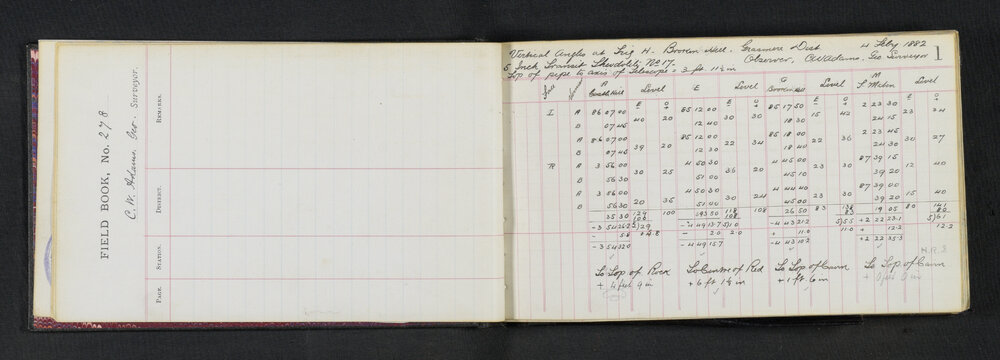 FIELD BOOK, No. 278
C. W. Adams, Geo. Surveyor.
PAGE.
STATION.
DISTRICT.
REMARKS.
1
Vertical Angles at Trig H - Broken Hill. Grasmere Dist 4 Feby 1882
5 Inch Transit Theodolite No 17. Observer, CWAdams. Geo Surveyor
Top of pipe to axis of Telescope = 3 ft 11½ in
Level E Level G Level M Level
Broken Hill
E O E O E O E O
I A 86 07 00 40 20 85 12 00 30 30 85 17 50 15 42 2 23 30 23 34
B 07 45 12 30 18 30 24 15
A 86 07 00 39 20 85 12 00 22 34 85 18 00 22 36 2 23 45 30 27
B 07 45 12 30 18 40 24 30
R A 3 56 00 30 25 4 50 30 36 20 4 45 00 23 30 87 39 15 12 40
B 56 30 51 00 45 10 39 20
A 3 56 00 20 35 4 50 30 24 4 44 40 23 30 87 39 00 15 40
B 56 30 51 00 45 00 39 20
35 30 100 118 108 26 50 83 138 19 05 80 141
108 83 80
5)29 5)10 -4 43 21.2 5)55 +2 22 23.1 5)61
- 5.8 - 2.0 2.0 + 11.0 11.0 + 12.2 12.2
-3 54 32.0 -4 49 15.7 -4 43 10.2 +2 22 35.3
N.R.S.
To Top of Rock To Centre of Red To Top of Cairn To Top of Cairn
+ 4 feet 9 in + 6 ft 1½ in + 1 ft 6 in